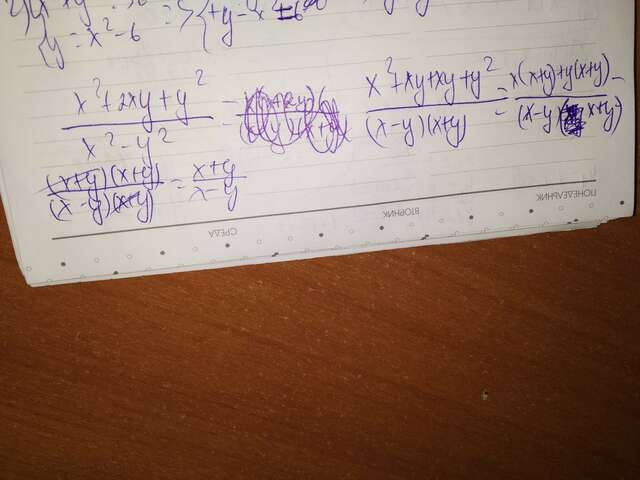 {y = x²-6 => {+y-x
x²+2xy+y² / x²-y² = x²+xy+xy+y² / (x-y)(x+y) = x(x+y)+y(x+y) / (x-y)(x+y) =
(x+y)(x+y) / (x-y)(x+y) = x+y / x-y
ПОНЕДЕЛЬНИК
ВТОРНИК
СРЕДА